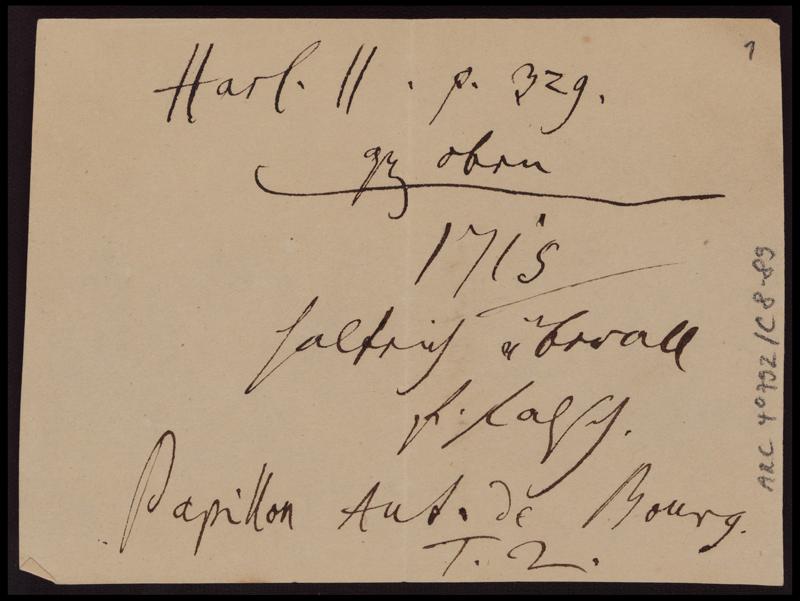 1
Harl. II. p. 329.
gz oben
1715
überall
f.
Papillon Aut. de Bourg.
T. 2.
ARC 4° 792/C8-89